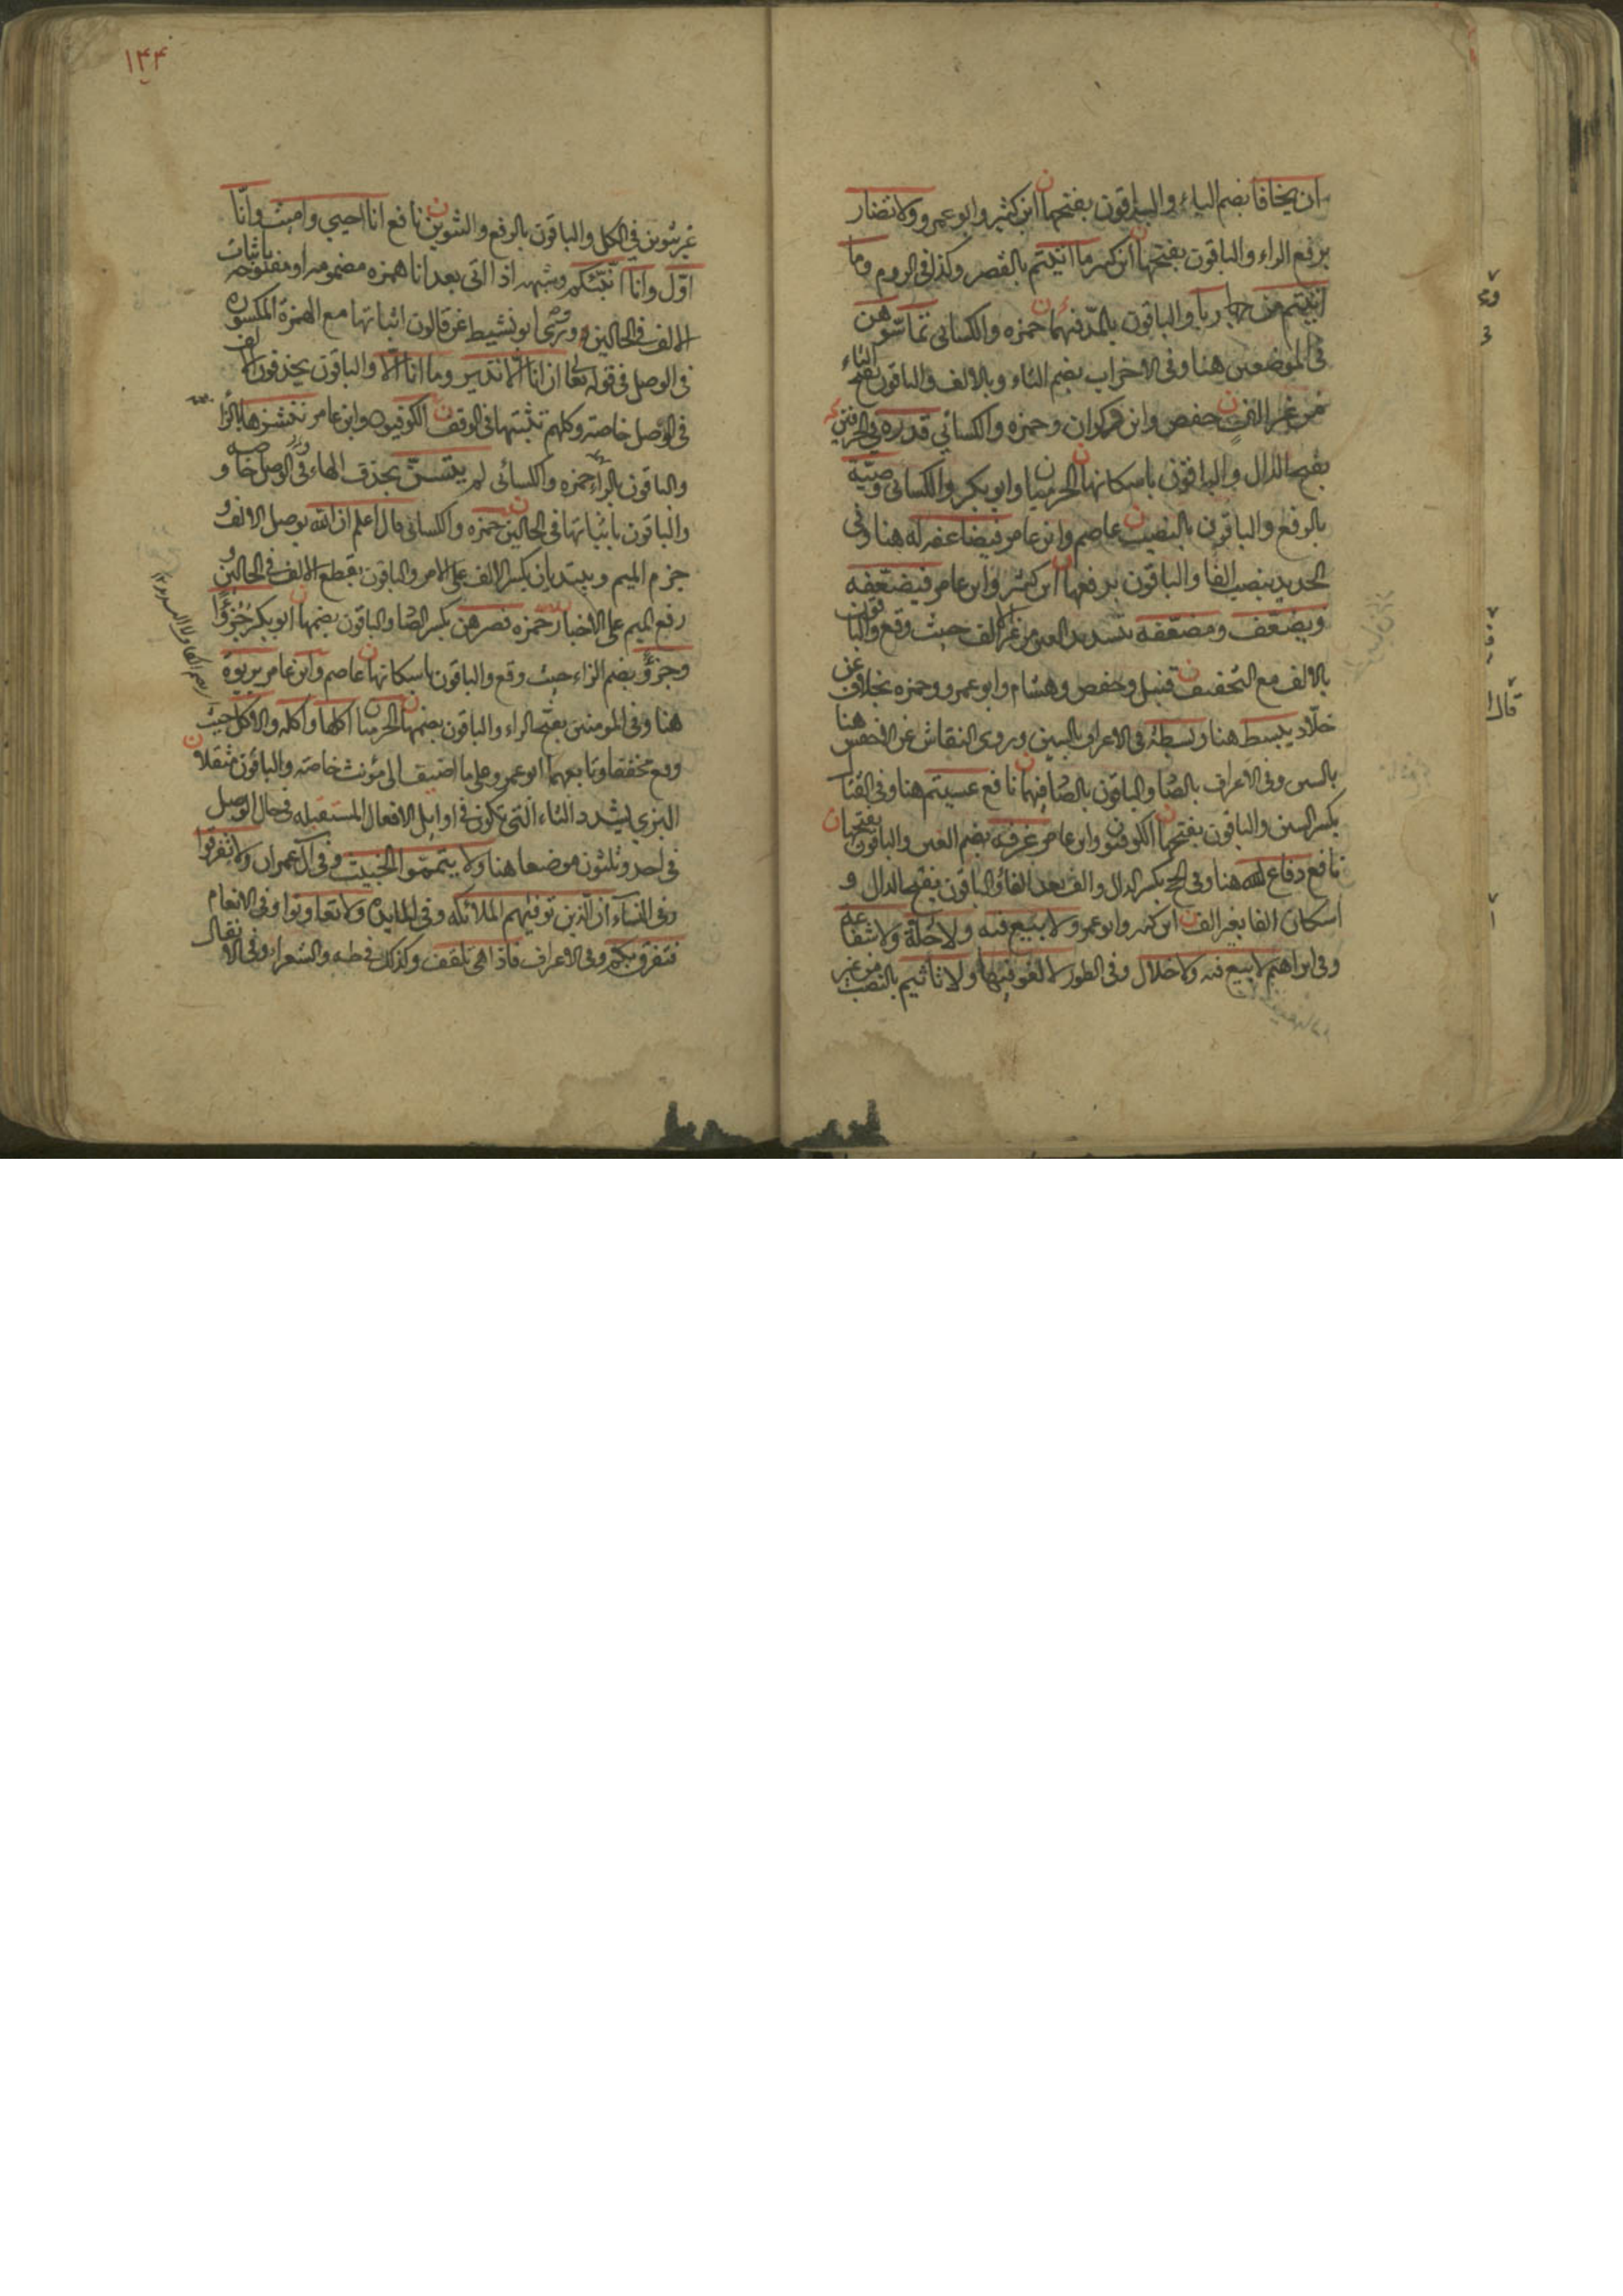 ان يخافا بضم الياء والباقون بفتحها ابن كثير وابو عمرو ولا تضار
برفع الراء والباقون بفتحها ابن كثير ما اتيتم بالقصر وكذا في الروم وما
اتيتم من ربا والباقون بالمد فيهما حمزه والكسائي تماسوهن
في الموضعين هنا وفي الاحزاب بضم التاء وبالالف والباقون بفتح التاء
من غير الف حفص وابن ذكوان وحمزه والكسائي قدره في الحرفين
بفتح الدال والباقون باسكانها الحرميا وابو بكر والكسائي وصية
بالرفع والباقون بالنصب عاصم وابن عامر فيضاعفه له هنا وفي
الحديد بنصب الفا والباقون برفعها ابن كثير وابن عامر فيضعفه
ويضعف ومضعفه بتشديد العين من غير الف حيث وقع والباقون
بالالف مع التخفيف قنبل وحفص وهشام وابو عمرو وحمزه بخلاف عن
خلاد يبسط هنا وبسطة في الاعراف بالسين وروى النقاش عن الاخفش هنا
بالسين وفي الاعراف بالصاد والباقون بالصاد فيهما نافع عسيتم هنا وفي القتال
بكسر السين والباقون بفتحها الكوفيون وابن عامر غرفة بضم الغين والباقون بفتحها
نافع دفاع الله هنا وفي الحج بكسر الدال والف بعد الفاء والباقون بفتح الدال و
اسكان الفا بغير الف ابن كثير وابو عمرو لا بيع فيه ولا خلة ولا شفاعة
وفي ابراهيم لا بيع فيه ولا خلال وفي الطور لا لغو فيها ولا تأثيم بالنصب من غير
قال
١٤٤
غير تنوين في الكل والباقون بالرفع والتنوين نافع انا احيي واميت وانا
اول وانا انبئكم وشبهه اذا اتى بعد انا همزه مضمومه او مفتوحه باثبات
الالف في الحالين وروى ابو نشيط عن قالون اثباتها مع الهمزة المكسوره
في الوصل في قوله تعا ان انا الا نذير وما انا الا والباقون يحذفون الالف
في الوصل خاصة وكلهم تثبتها في الوقف الكوفيون وابن عامر ننشزها بالزا
والباقون بالراء حمزه والكسائي لم يتسن بحذف الهاء في الوصل خاصه و
والباقون باثباتها في الحالين حمزه والكسائي قال اعلم ان الله بوصل الالف و
جزم الميم ويبتديان بكسر الالف على الامر والباقون بقطع الالف في الحالين و
رفع الميم على الاخبار حمزه فصرهن بكسر الصاد والباقون بضمها ابو بكر جزؤا
وجزؤ بضم الزاء حيث وقع والباقون باسكانها عاصم وابن عامر بربوة
هنا وفي المومنين بفتح الراء والباقون بضمها الحرميا اكلها واكله والاكل حيث
وقع مخففا وتابعهما ابو عمرو على ما اضيف الى مؤنث خاصه والباقون مثقلا
البزي يشدد التاء التي تكون في اوايل الافعال المستقبله في حال الوصل
في احد وثلثون موضعا هنا ولا يتمموا الخبيث وفي آل عمران ولا تفرقوا
وفي النساء ان الذين توفيهم الملائكه وفي المايده ولا تعاونوا وفي الانعام
فتفرق بكم وفي الاعراف فاذا هي تلقف وكذلك في طه والشعراء وفي الانفال